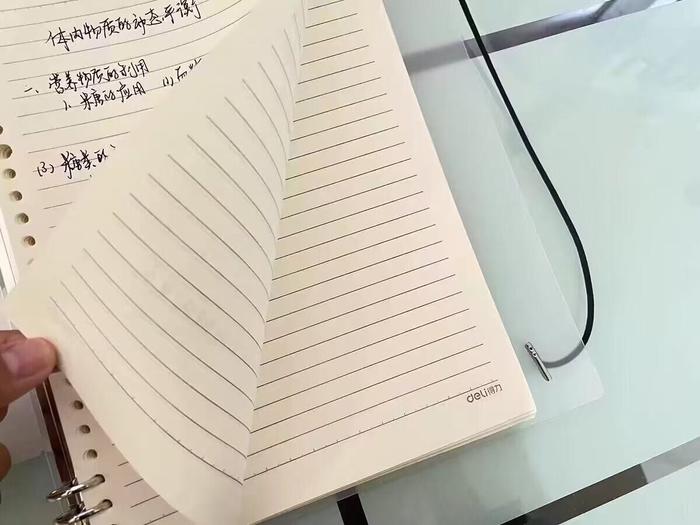 体内物质的动态平衡
一、营养物质的利用
1、糖的应用 (1)
(3)、糖类的
deli得力